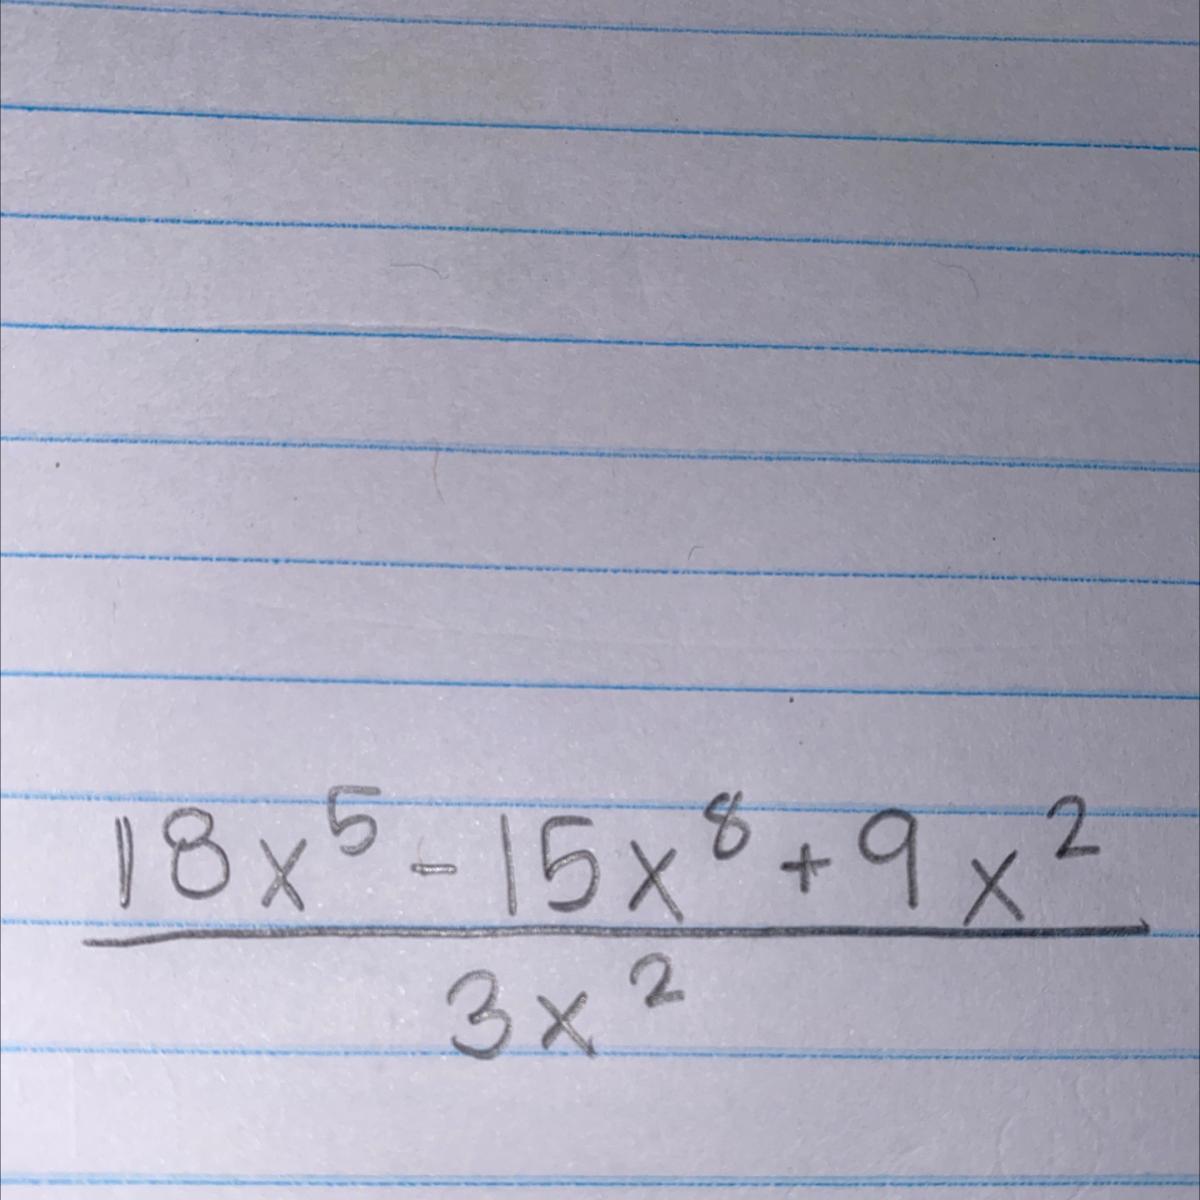 18x⁵ - 15x⁸ + 9x²
3x²